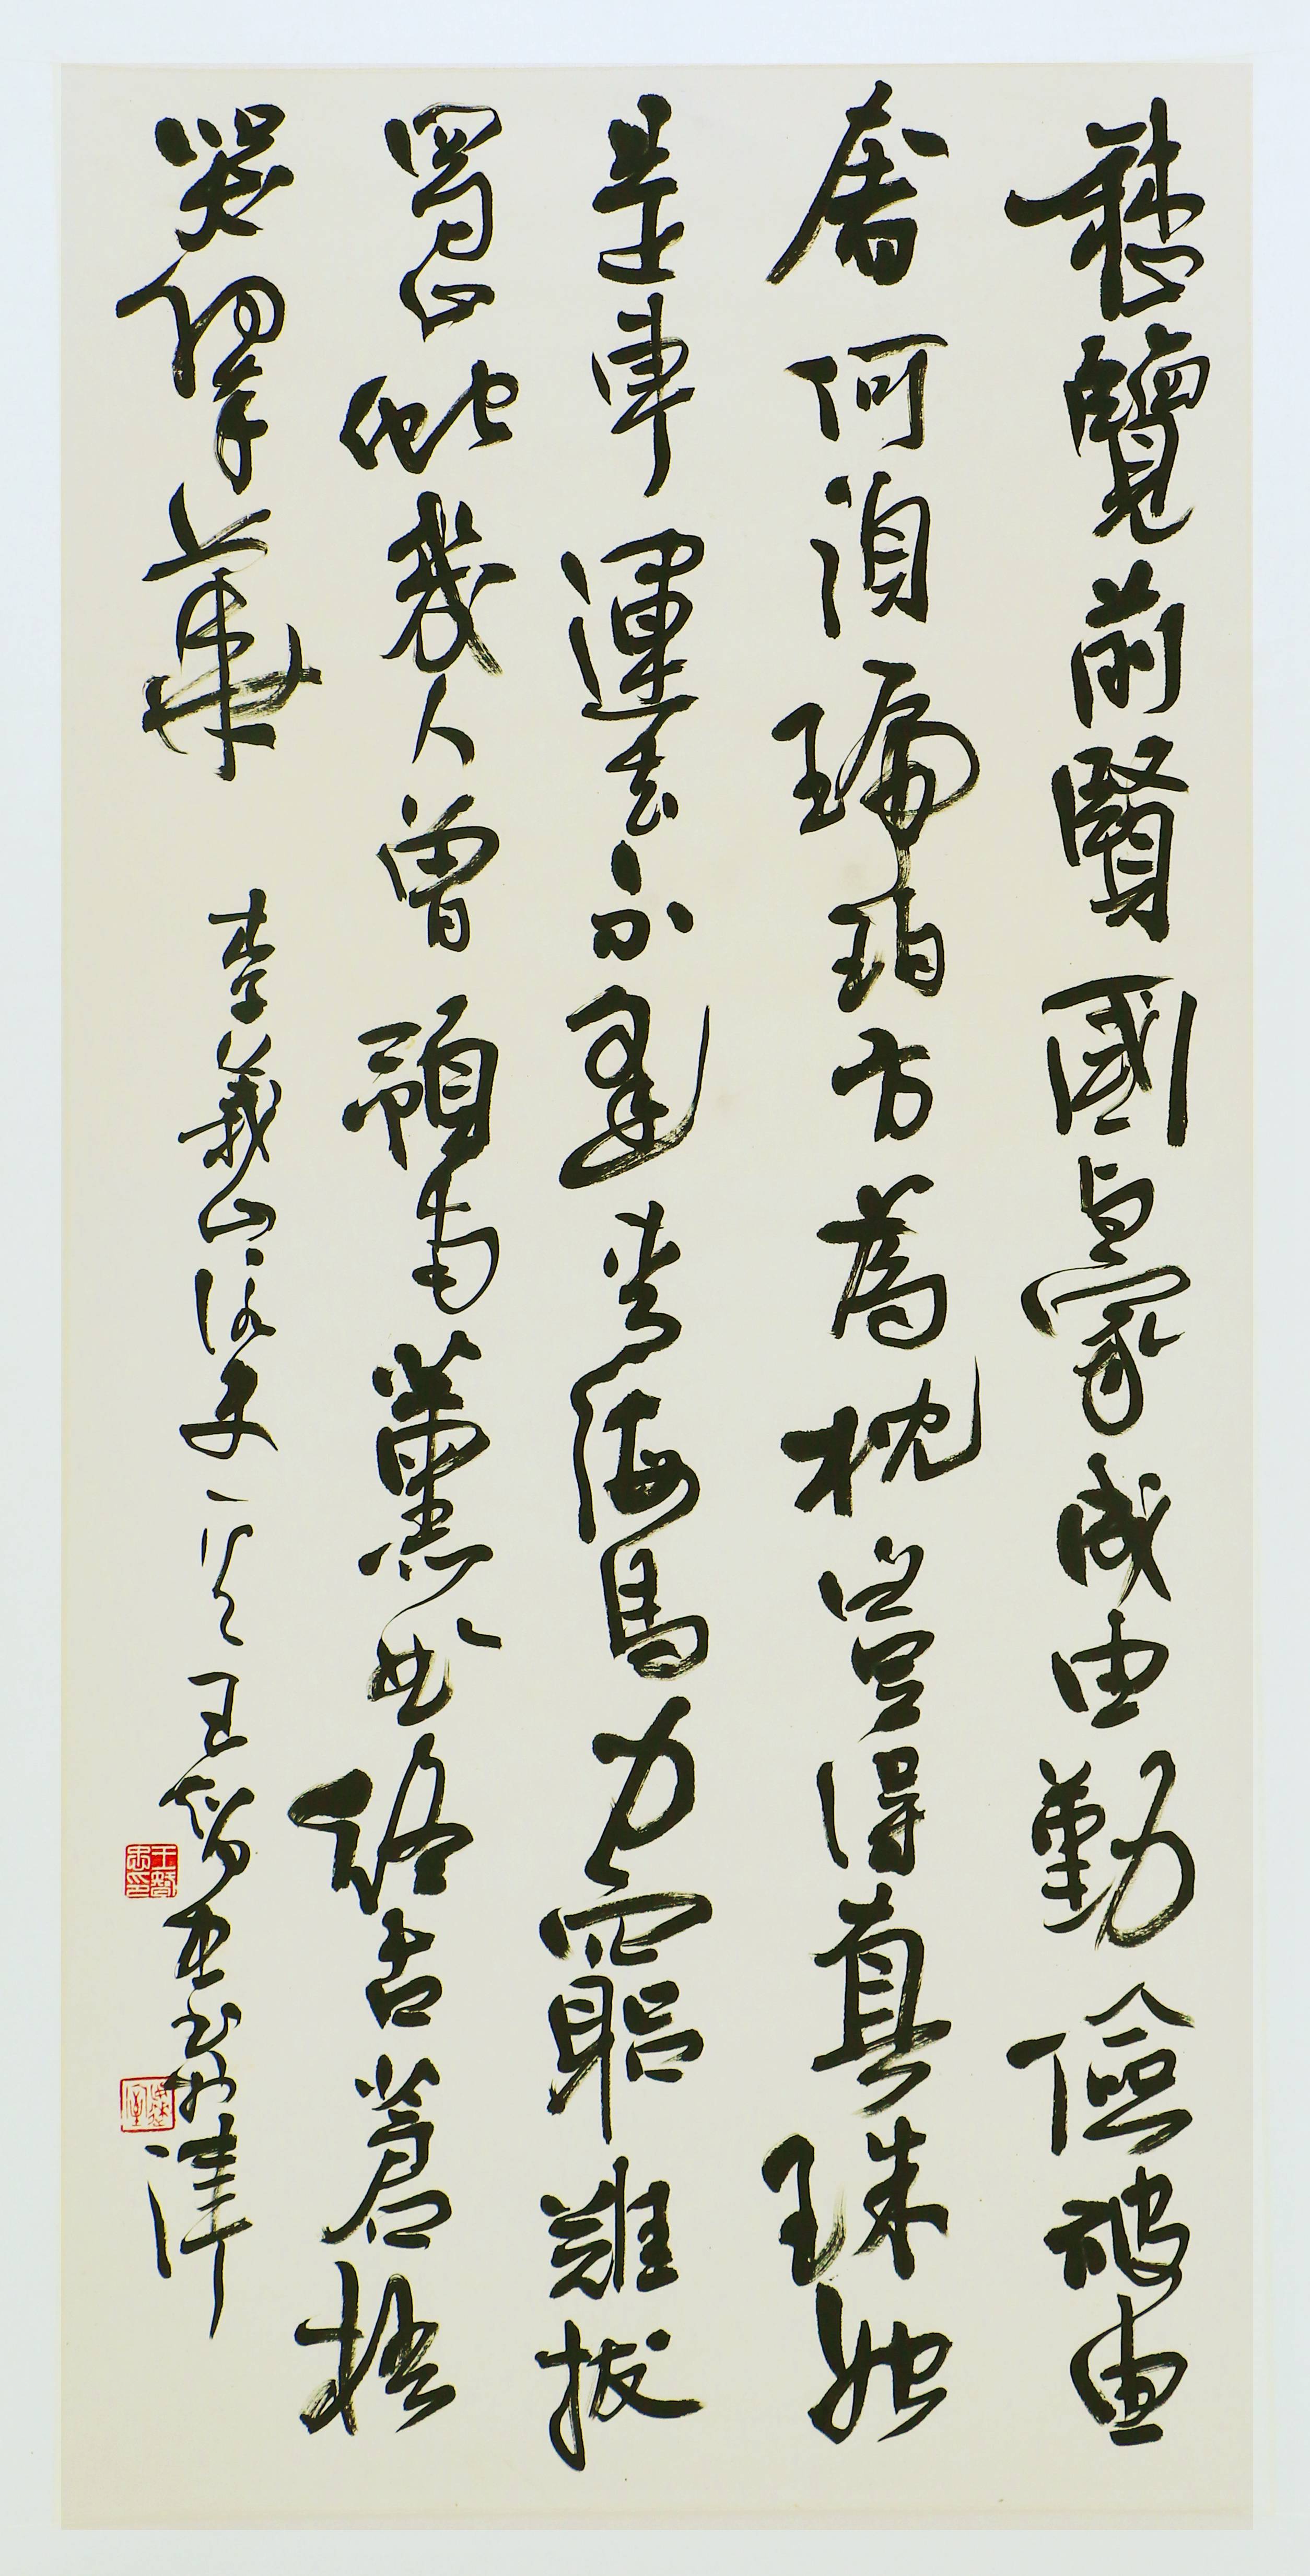 歷覽前賢國與家成由勤儉破由
奢何須琥珀方為枕豈得真珠始
是車運去不逢青海馬力窮難拔
蜀山蛇幾人曾預南薰曲終古蒼梧
哭翠華 李義山詠史一首 王 書於津